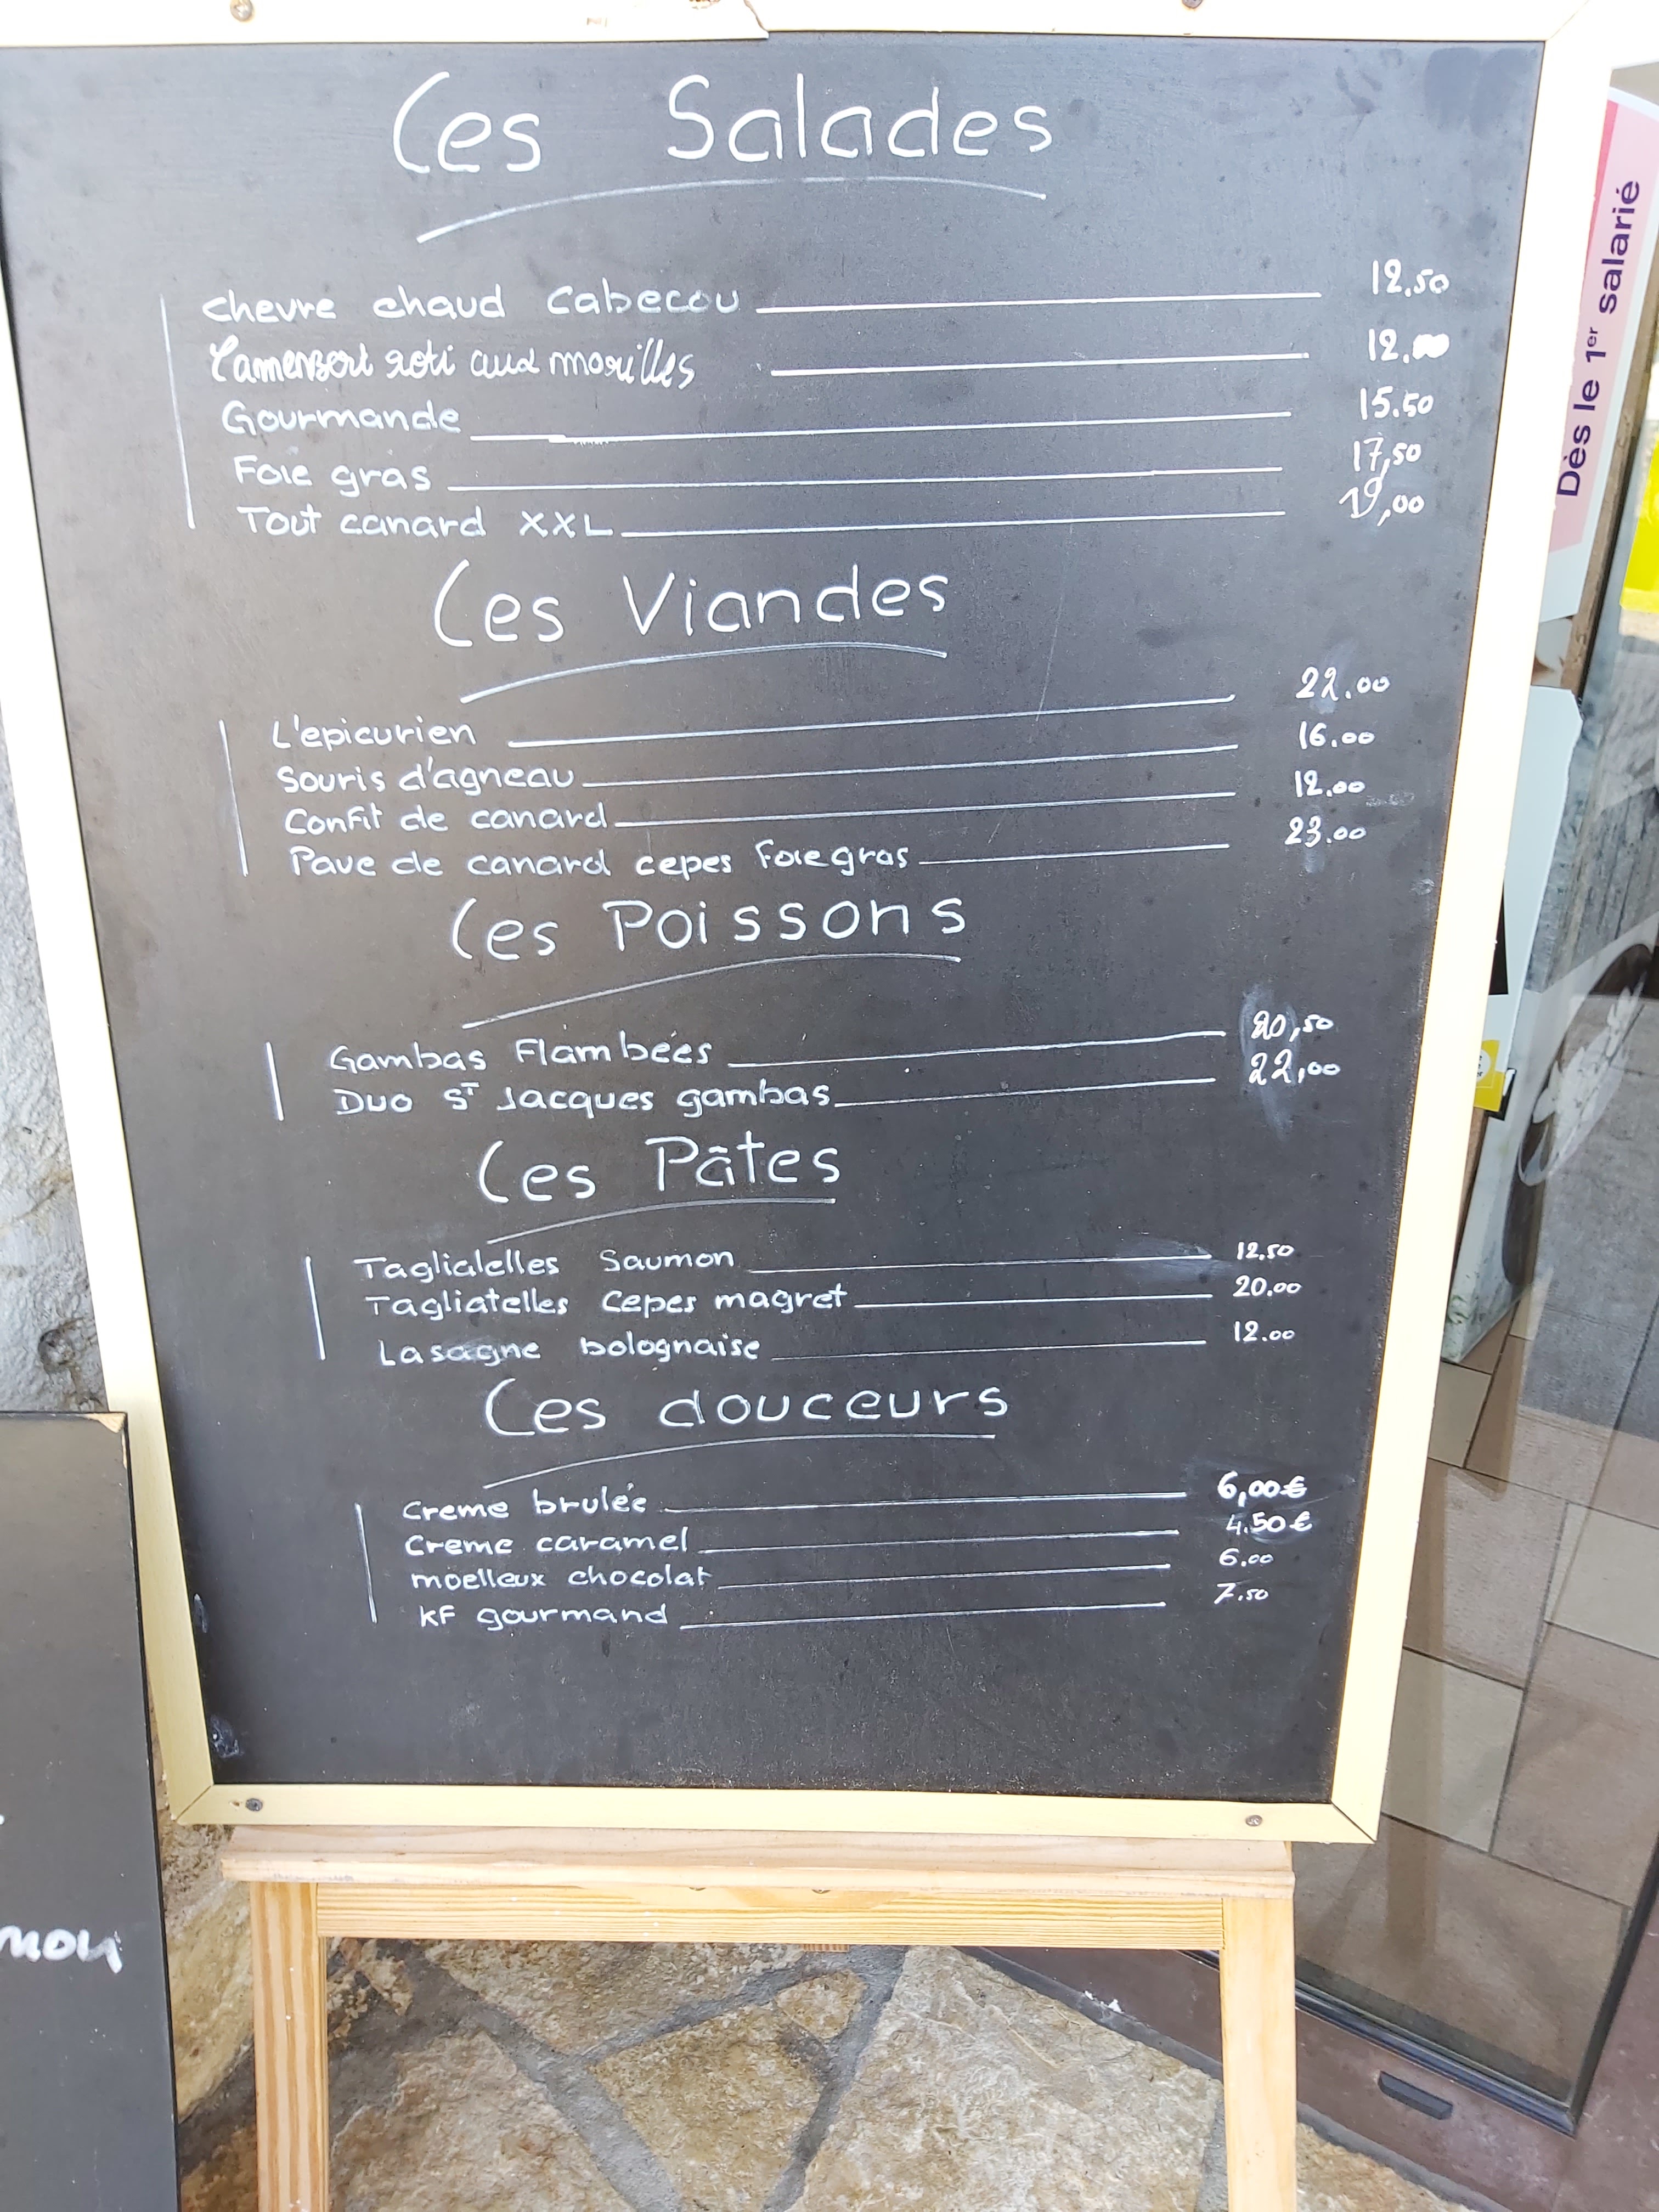 Les Salades
chevre chaud cabecou 12.50
Camembert roti aux morilles 12.00
Gourmande 15.50
Foie gras 17,50
Tout canard XXL 19,00
Les Viandes
L'epicurien 22.00
Souris d'agneau 16.00
Confit de canard 12.00
Pave de canard cepes foie gras 23.00
Les Poissons
Gambas Flambées 20,50
Duo ST Jacques gambas 22,00
Les Pâtes
Tagliatelles Saumon 12.50
Tagliatelles cepes magret 20.00
Lasagne bolognaise 12.00
Les douceurs
Creme brulée 6,00€
Creme caramel 4.50€
moelleux chocolat 6.00
KF gourmand 7.50
Dès le 1er salarié